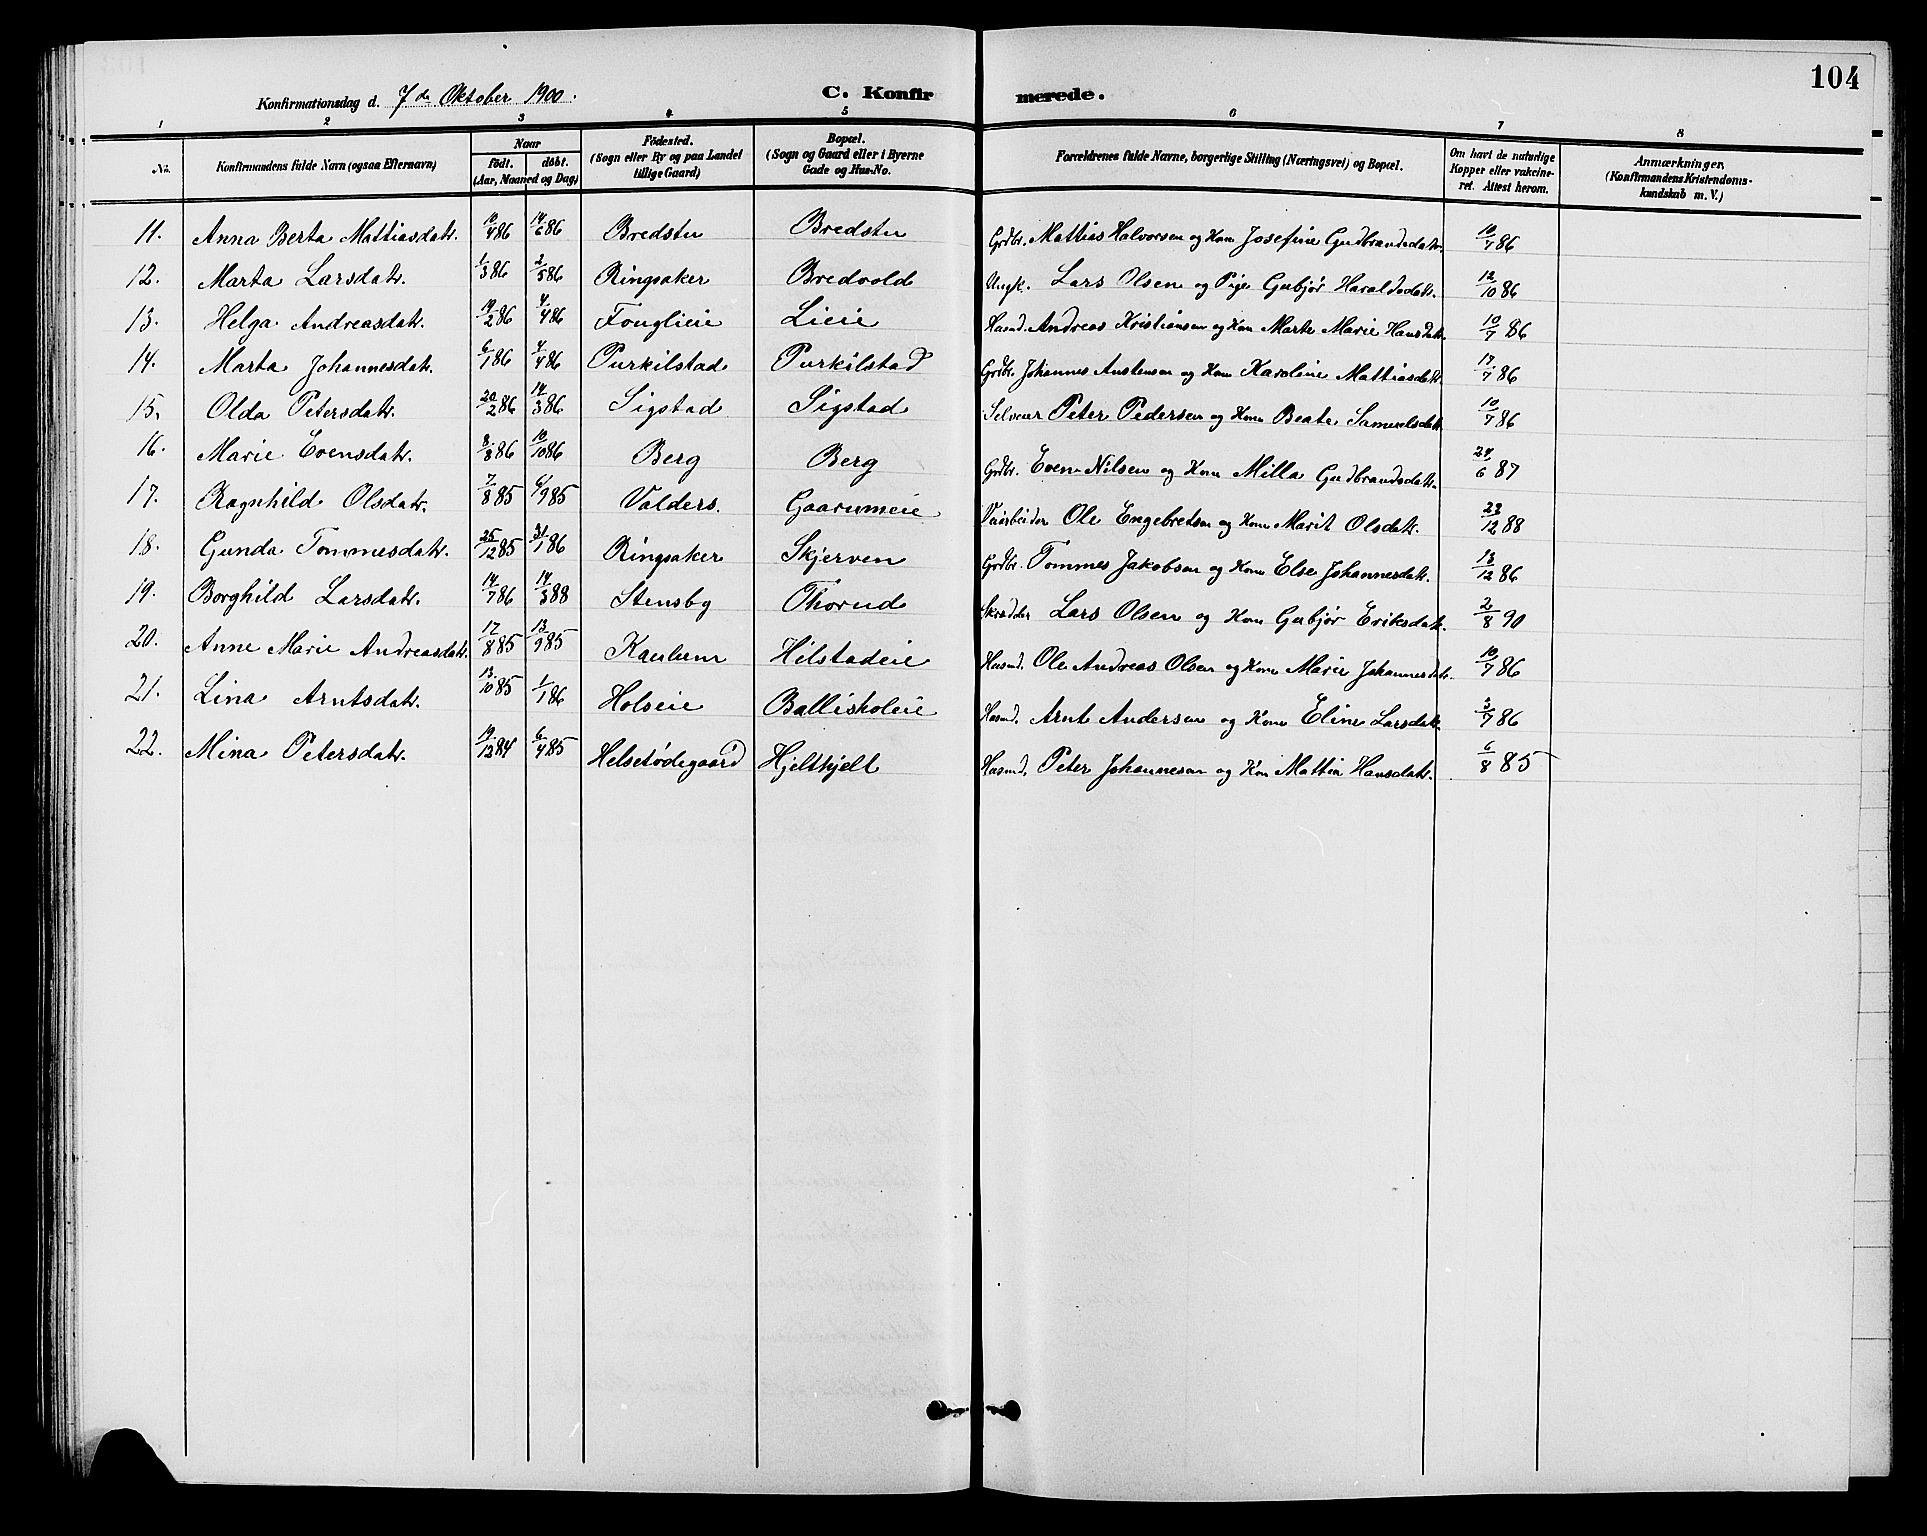 104
Konfirmationsdag d. 7de Oktober 1900.
C. Konfir merede.
1 2 3 4 5 6 7 8
No. Konfirmandens fulde Navn (ogsaa Efternavn) Naar født. døbt. (Aar, Maaned og Dag) Fødested. (Sogn eller By og paa Landet tillige Gaard) Bopæl. (Sogn og Gaard eller i Byerne Gade og Hus-No. Forældrenes fulde Navne, borgerlige Stilling (Næringsvei) og Bopæl. Om havt de naturlige Kopper eller vakcineret. Attest herom. Anmærkninger. (Konfirmandens Kristendomskundskab m. V.)
11. Anna Berta Mattiasdatr. 10/4 86 14/6 86 Bredstu Bredstu Grdbr. Mattias Halvorsen og Kone Josefine Gudbrandsdatr. 10/7 86
12. Marta Larsdatr. 1/3 86 2/5 86 Ringsaker Bredvold Ungk. Lars Olsen og Pige Gubjør Haraldsdatr. 12/10 86
13. Helga Andreasdatr. 19/2 86 4/4 86 Fouglieie Lieie Husmd. Andreas Kristiansen og Kone Marte Marie Hansdatr. 10/7 86
14. Marta Johannesdatr. 6/1 86 4/4 86 Purkilstad Purkilstad Grdbr. Johannes Austensen og Kone Karoline Mattiasdatr. 17/7 86
15. Olda Petersdatr. 20/2 86 14/3 86 Sigstad Sigstad Selveier Peter Pedersen og Kone Beate Samuelsdatr. 10/7 86
16. Marie Evensdatr. 8/8 86 10/10 86 Berg Berg Grdbr. Even Nilsen og Kone Milla Gudbrandsdatr. 24/6 87
17. Ragnhild Olsdatr. 7/8 85 6/9 85 Valders. Gaarumeie Veiarbeider Ole Engebretsen og Kone Marit Olsdatr. 23/12 88
18. Gunda Tommesdatr. 25/12 85 31/1 86 Ringsaker Skjerven Grdbr. Tommes Jakobsen og Kone Else Johannesdatr. 13/12 86
19. Borghild Larsdatr. 14/7 86 14/3 88 Stensby Thorud Skrædder Lars Olsen og Kone Gubjør Eriksdatr. 2/8 90
20. Anne Marie Andreasdatr. 17/8 85 13/9 85 Kaulum Hilstadeie Husmd. Ole Andreas Olsen og Kone Marie Johannesdatr. 10/7 86
21. Lina Arntsdatr. 13/10 85 1/1 86 Holseie Ballishøleie Husmd. Arnt Andersen og Kone Eline Larsdatr. 3/7 86
22. Mina Petersdatr. 19/12 84 6/4 85 Helsetødegaard Hjeltkjelt Husmd. Peter Johannesen og Kone Mattia Hansdatr. 6/8 85